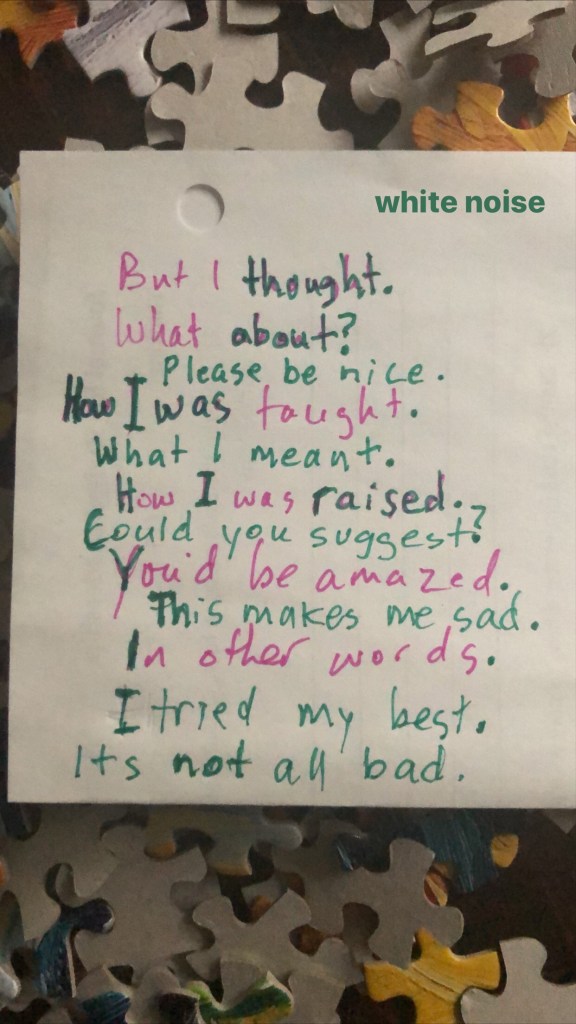 white noise
But I thought.
What about?
Please be nice.
How I was taught.
What I meant.
How I was raised.
Could you suggest?
You'd be amazed.
This makes me sad.
In other words.
I tried my best.
Its not all bad.